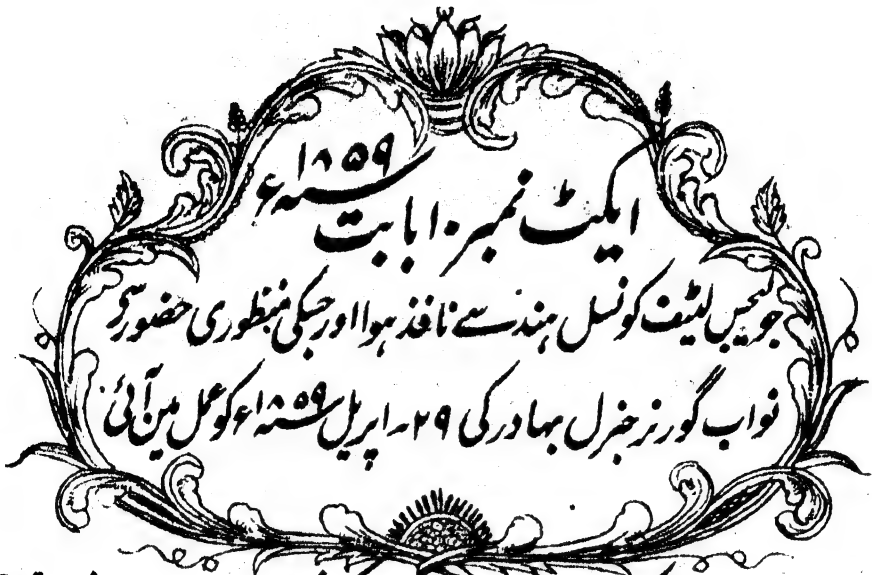 ایکٹ نمبر ۱۰ بابت سنہ ۱۸۵۹ء
جو لیجس لیٹف کونسل ہند سے نافذ ہوا اور جسکی منظوری حضور سے
نواب گورنر جنرل بہادر کی ۲۹۔ اپریل سنہ ۱۸۵۹ء کو عمل مین آئی